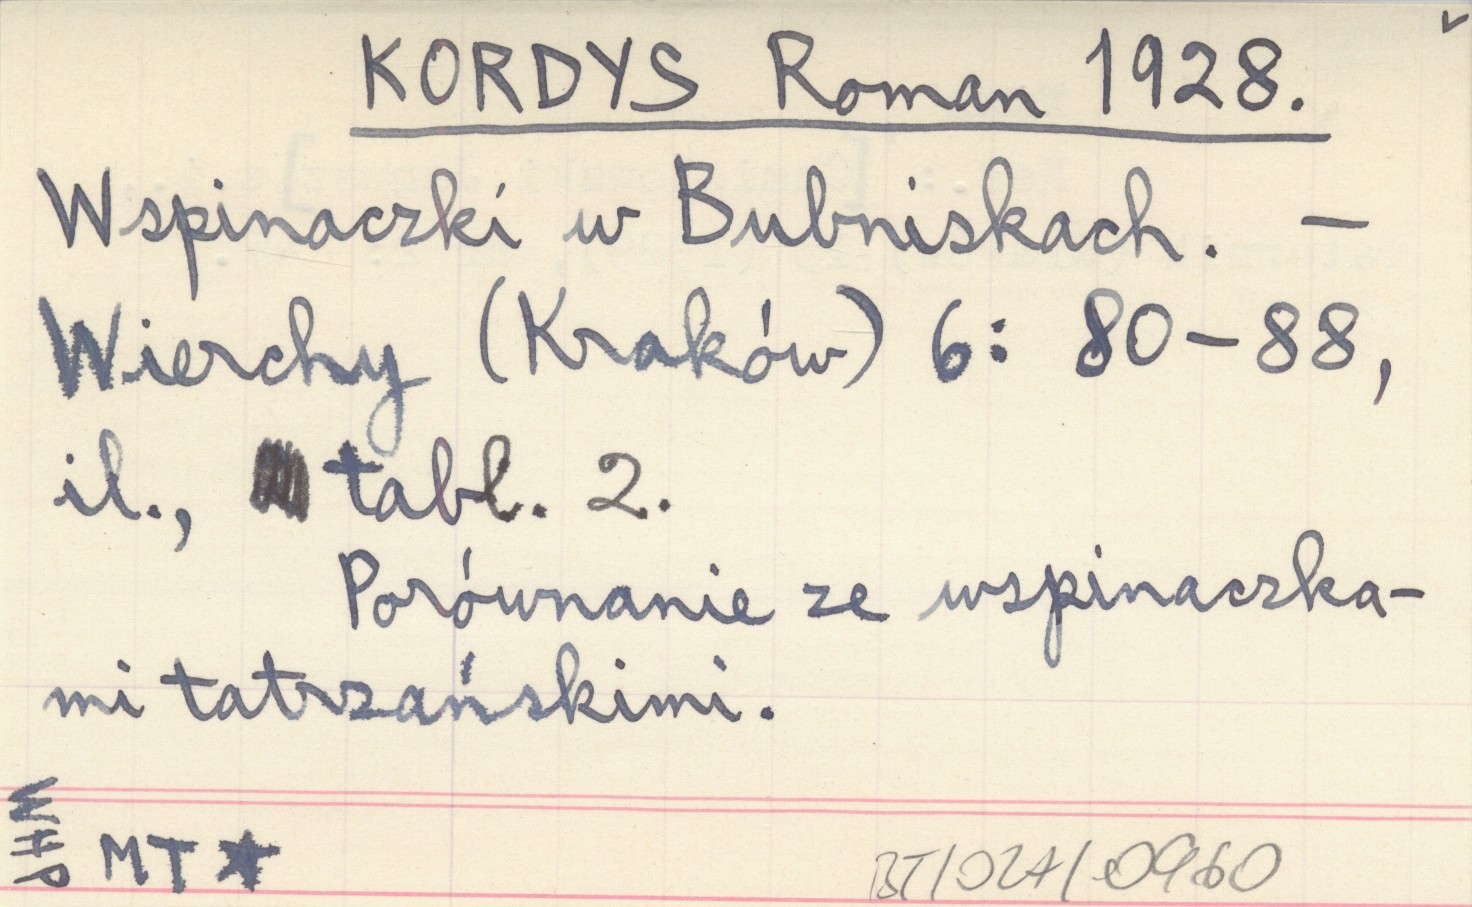 KORDYS Roman 1928.
Wspinaczki w Bubniskach. —
Wierchy (Kraków) 6: 80-88,
il., tabl. 2.
Porównanie ze wspinaczka-
mi tatrzańskimi.
WHP
MT ★
BT/024/0960